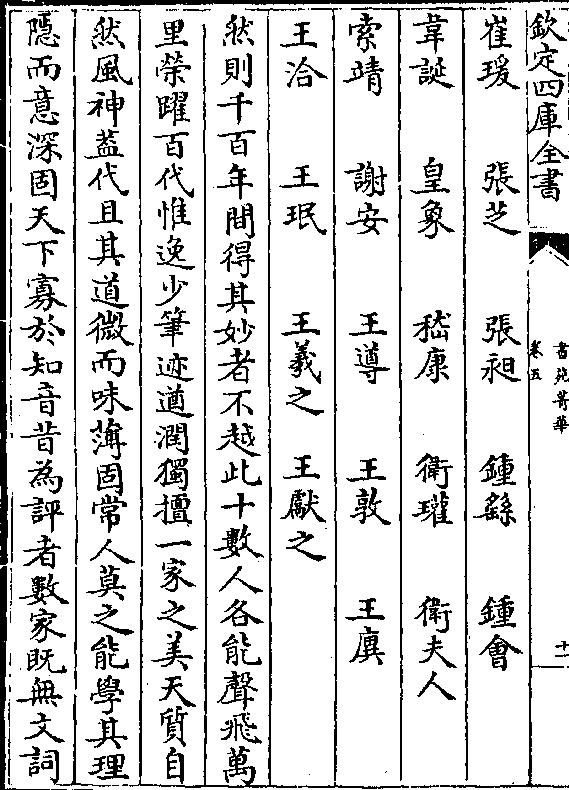 欽定四庫全書
書苑菁華
卷五
十一
崔瑗 張芝 張昶 鍾繇 鍾會
韋誕 皇象 嵇康 衛瓘 衛夫人
索靖 謝安 王導 王敦 王廙
王洽 王珉 王羲之 王獻之
然則千百年間得其妙者不越此十數人各能聲飛萬
里榮躍百代惟逸少筆迹遒潤獨擅一家之美天質自
然風神葢代且其道微而味薄固常人莫之能學其理
隱而意深固天下寡於知音昔為評者數家既無文詞